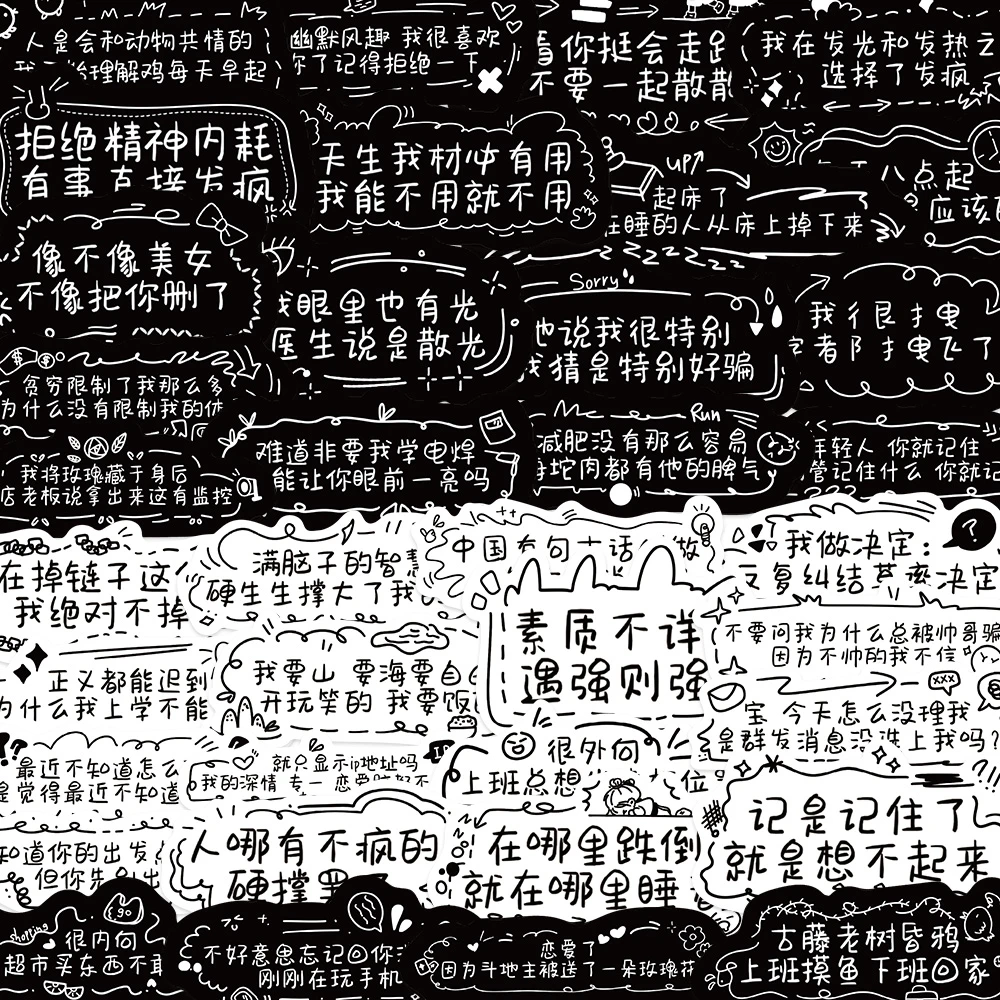 人是会和动物共情的
理解鸡每天早起
幽默风趣 我很喜欢
你了记得拒绝一下
看你挺会走
不要一起散散
我在发光和发热之
选择了发疯
拒绝精神内耗
有事直接发疯
天生我材必有用
我能不用就不用
up
起床了
在睡的人从床上掉下来
八点起
应该
像不像美女
不像把你删了
我眼里也有光
医生说是散光
Sorry
他说我很特别
我猜是特别好骗
我
飞了
贫穷限制了我那么多
为什么没有限制我的体
难道非要我学电焊
能让你眼前一亮吗
Run
减肥没有那么容易
每坨肉都有他的脾气
年轻人 你就记住
管记住什么 你就记
我将玫瑰藏于身后
店老板说拿出来这有监控
在掉链子这
我绝对不掉
满脑子的智慧
硬生生撑大了我
中国有句古话
做
我做决定：
反复纠结 草率决定
?
素质不详
遇强则强
不要问我为什么总被帅哥骗
因为不帅的我不信
正义都能迟到
为什么我上学不能
我要山 要海要自
开玩笑的 我要饭
xxx
宝 今天怎么没理我
是群发消息没选上我吗？
最近不知道怎么
是觉得最近不知道
就只显示ip地址吗
我的深情 专一 恋爱脑都不
很外向
上班总想
位
知道你的出发
但你先别出
人哪有不疯的
硬撑罢
在哪里跌倒
就在哪里睡
记是记住了
就是想不起来
shopping
很内向
超市买东西不
不好意思忘记回你
刚刚在玩手机
恋爱了
因为斗地主被送了一朵玫瑰花
古藤老树昏鸦
上班摸鱼下班回家